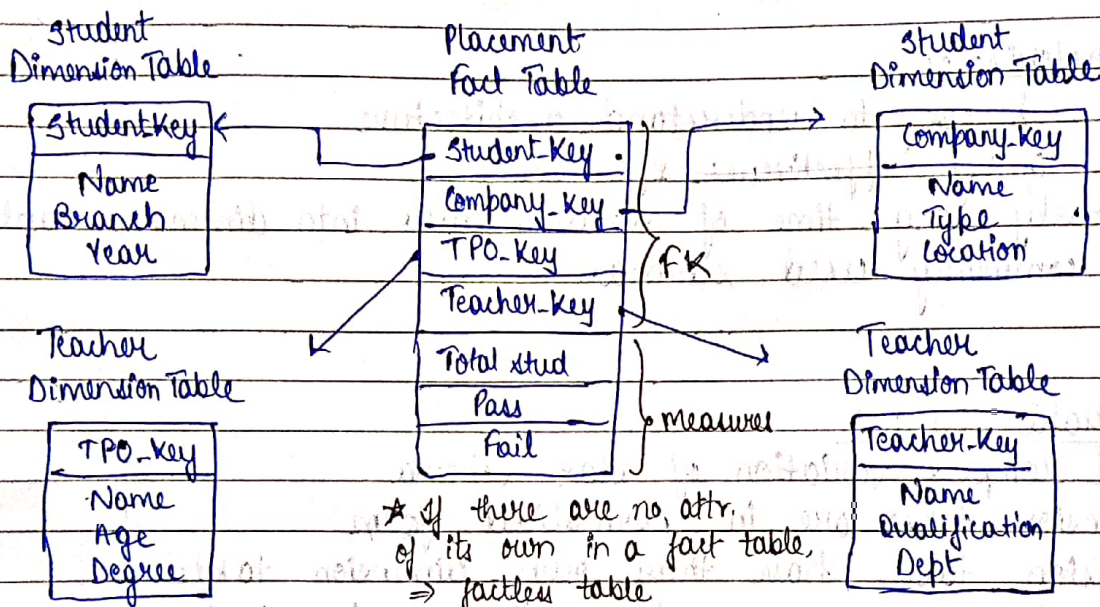 Student
Dimension Table
StudentKey
Name
Branch
Year
Placement
Fact Table
Student_Key
Company_Key
TPO_Key
Teacher_Key
FK
Total stud
Pass
Fail
measures
Student
Dimension Table
Company_Key
Name
Type
Location
Teacher
Dimension Table
TPO_Key
Name
Age
Degree
Teacher
Dimension Table
Teacher_Key
Name
Qualification
Dept
* If there are no, attr.
of its own in a fact table,
⇒ factless table